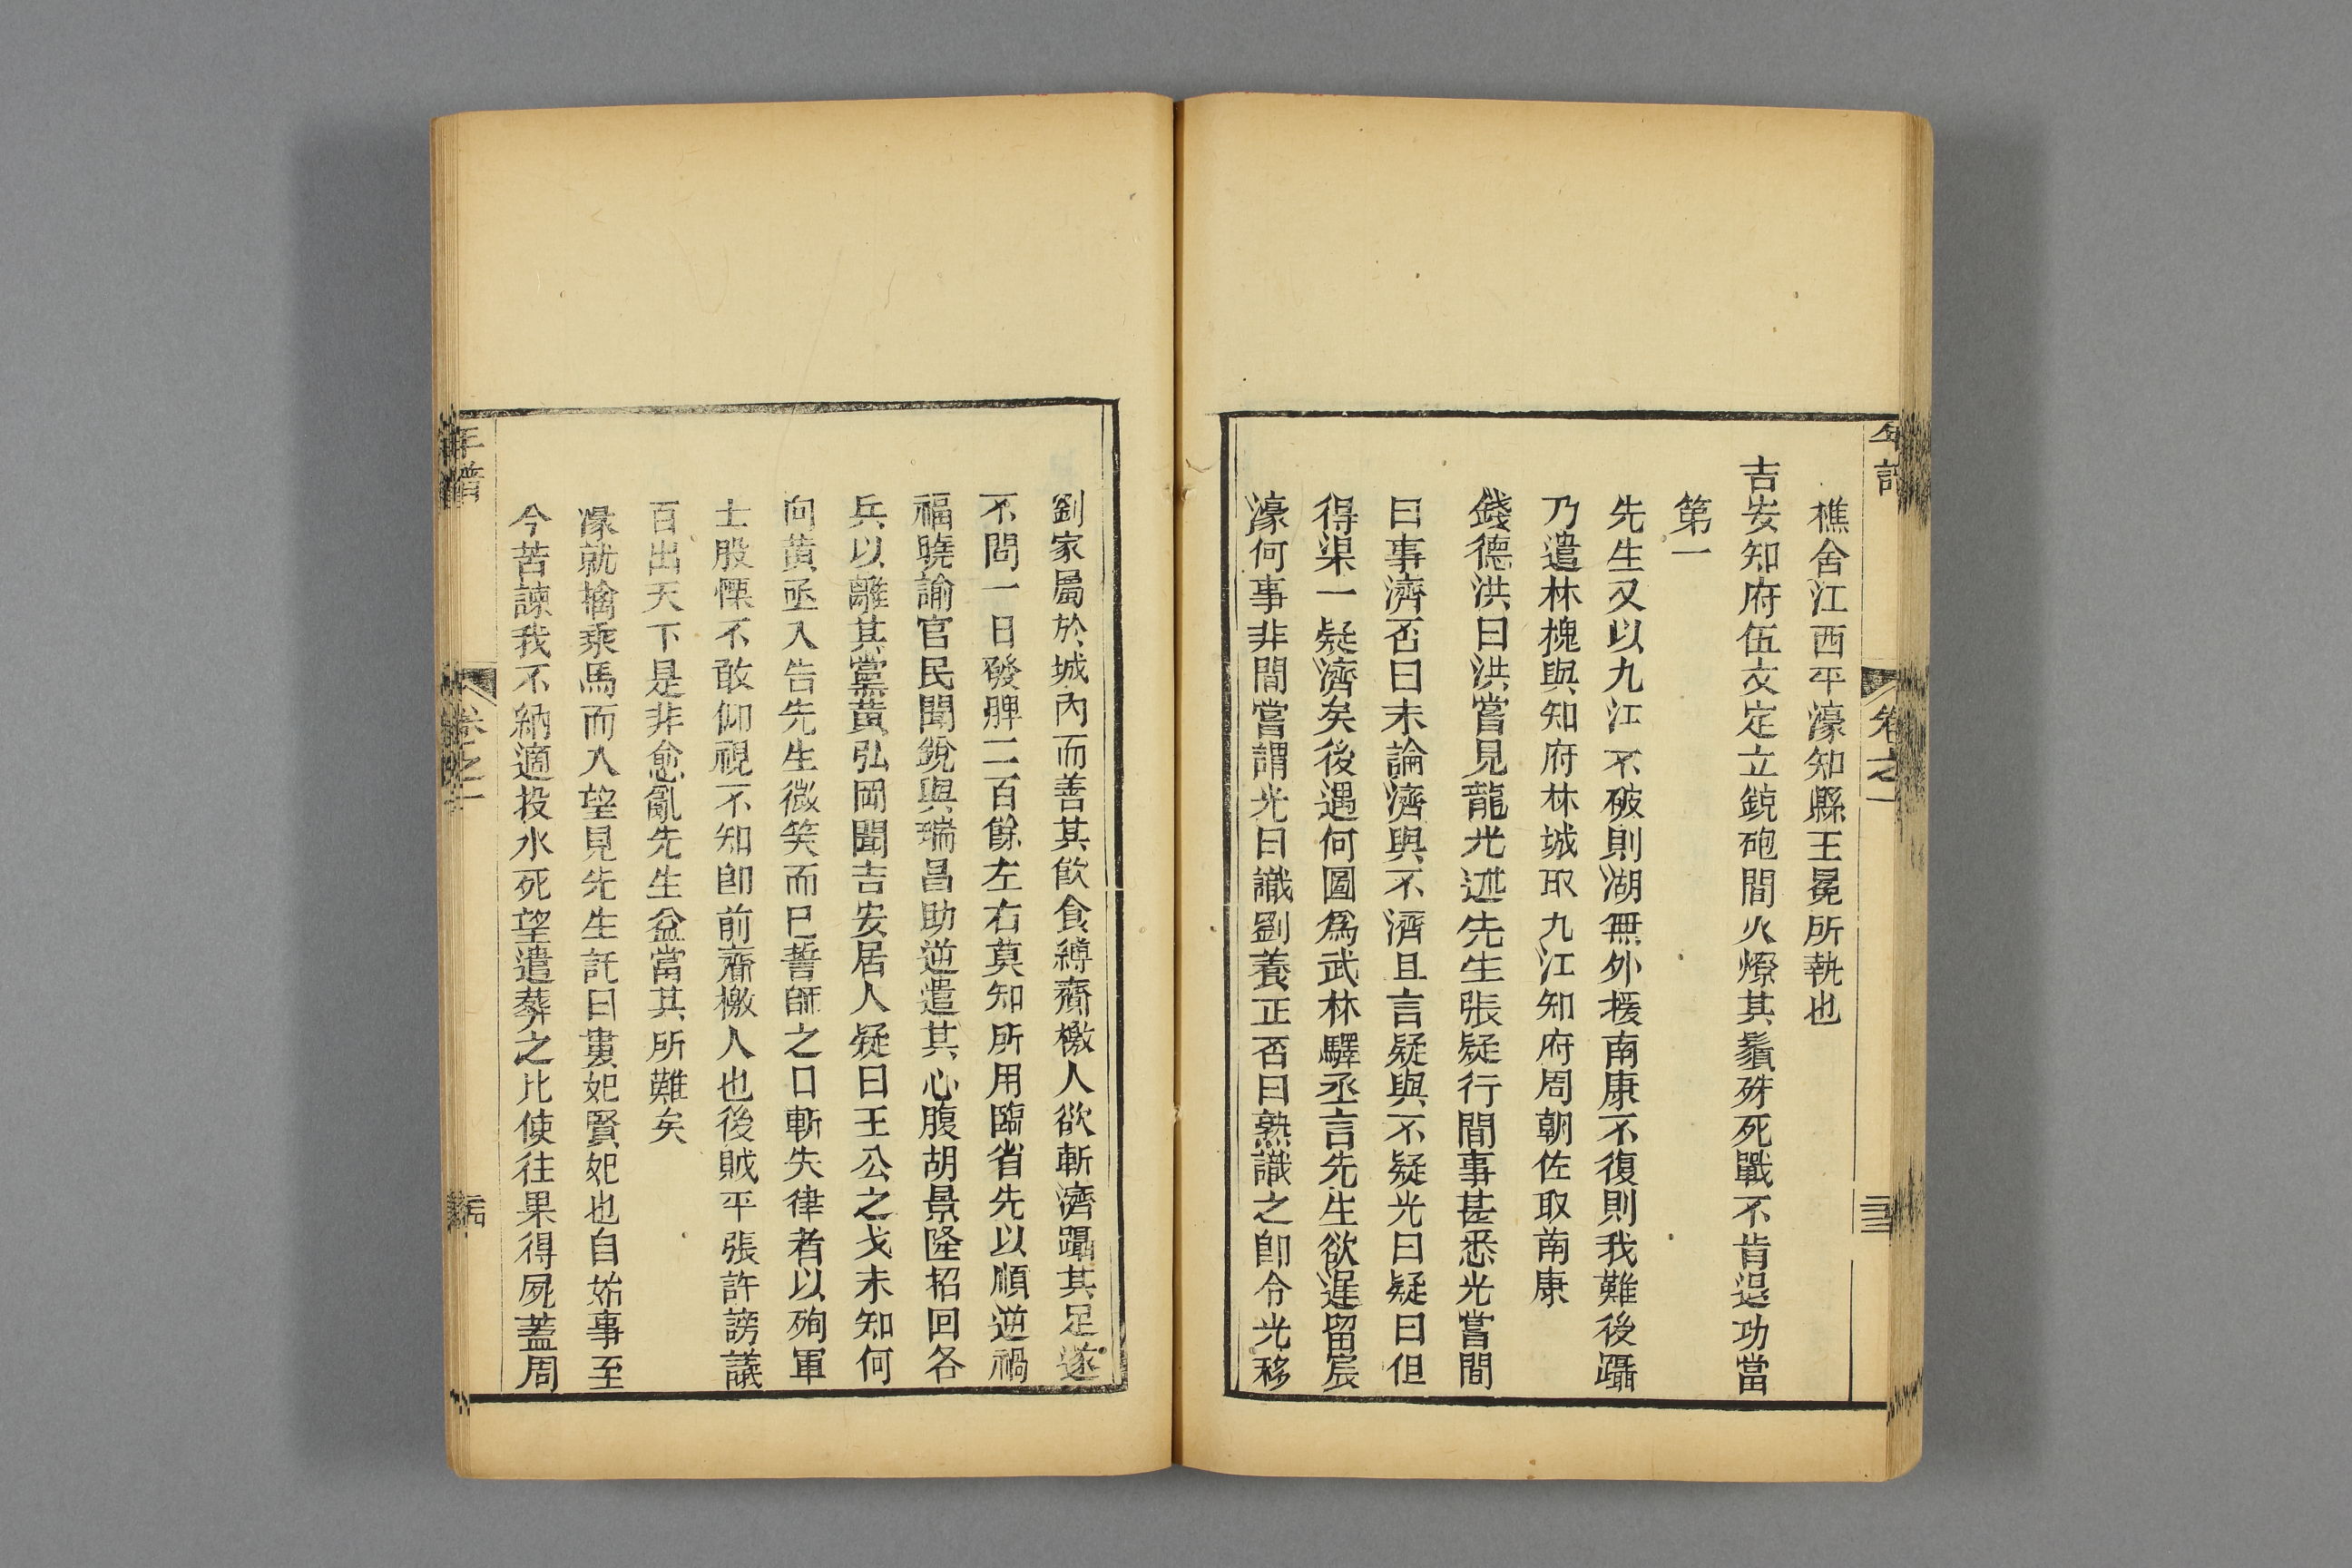 樵舍江西平濠知縣王冕所執也
吉安知府伍文定立銃砲間火燎其鬚殊死戰不肯退功當
第一
先生又以九江不破則湖無外援南康不復則我難後躡
乃遣林槐與知府林城取九江知府周朝佐取南康
錢德洪曰洪嘗見龍光述先生張疑行間事甚悉光嘗間
曰事濟否曰未論濟與不濟且言疑與不疑光曰疑曰但
得渠一疑濟矣後遇何圖為武林驛丞言先生欲遲留宸
濠何事非間嘗謂光曰識劉養正否曰熟識之卽令光移
劉家屬於城內而善其飲食縛齎檄人欲斬濟躡其足遂
不問一日發牌二百餘左右莫知所用臨省先以順逆禍
福曉諭官民聞銳與瑞昌助逆遣其心腹胡景隆招回各
兵以離其黨黃弘岡聞吉安居人疑曰王公之戈未知何
向黃亟入告先生微笑而已誓師之日斬失律者以殉軍
士股慄不敢仰視不知卽前齎檄人也後賊平張許謗議
百出天下是非愈亂先生益當其所難矣
濠就擒乘馬而入望見先生託曰婁妃賢妃也自始事至
今苦諫我不納適投水死望遣葬之比使往果得屍蓋周
年譜
卷之一